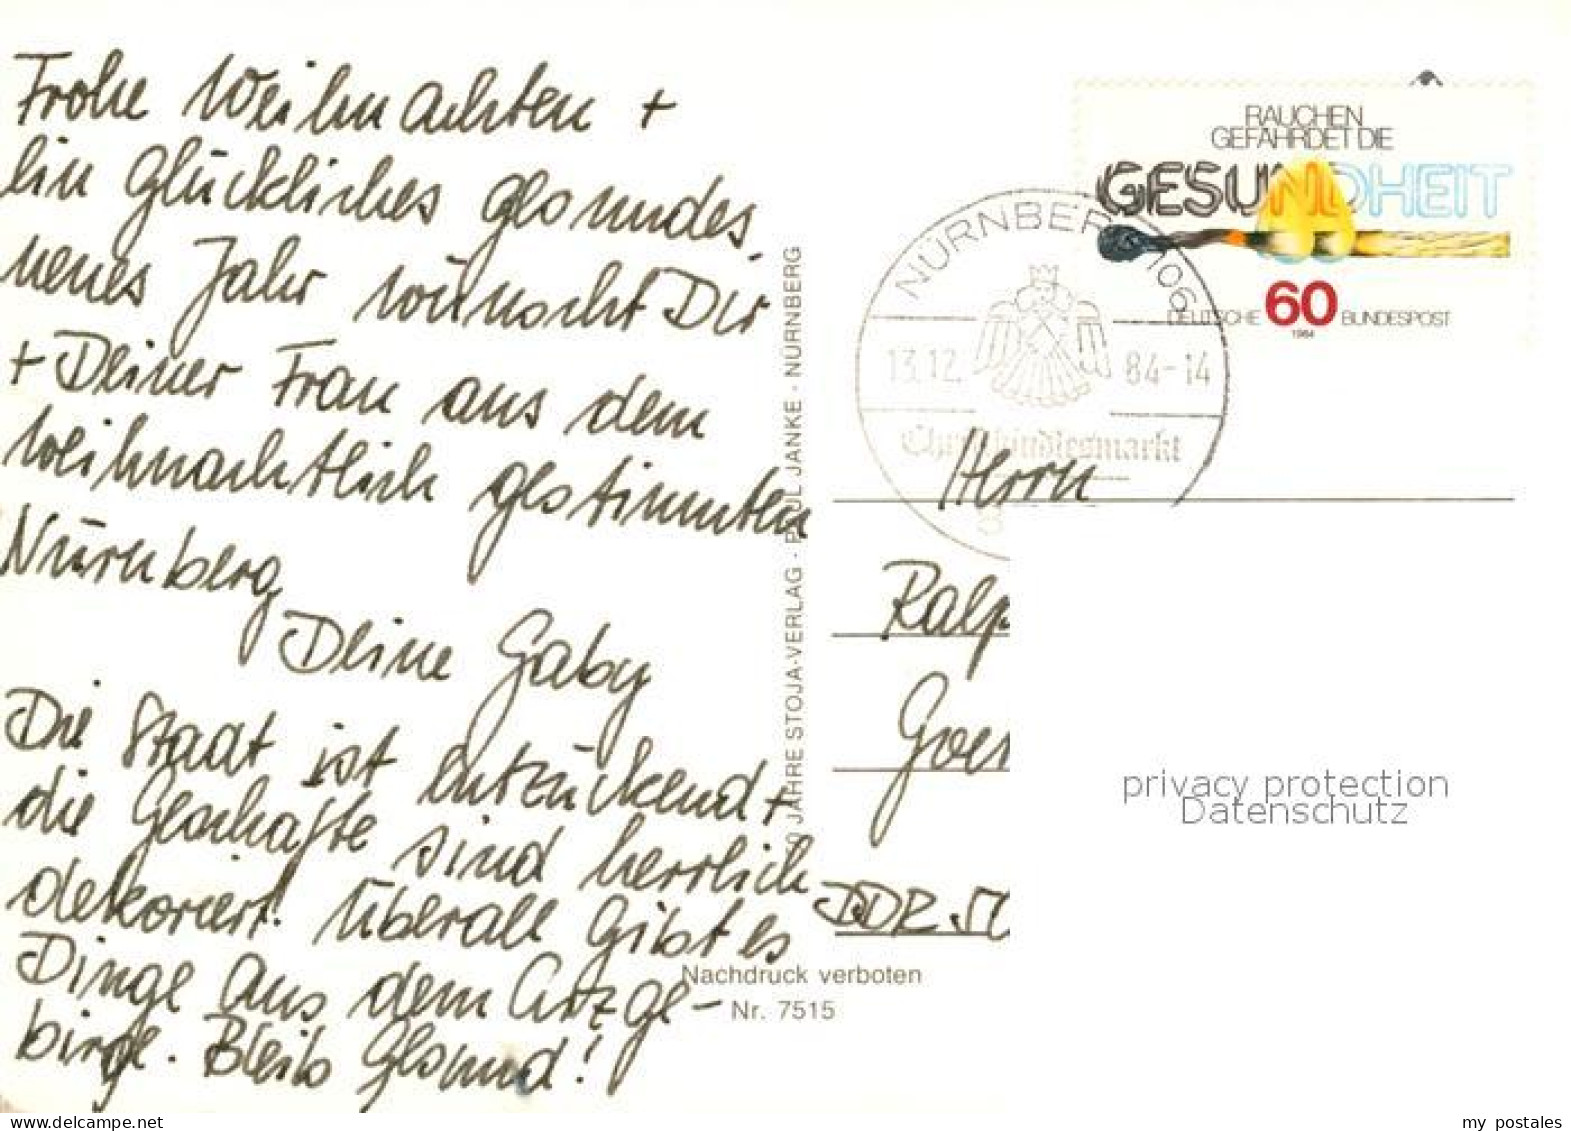 Frohe Weihnachten +
ein glückliches gesundes
neues Jahr wünscht Dir
+ Deiner Frau aus dem
weihnachtlich gestimmten
Nürnberg
Deine Gaby
Die Stadt ist entzückend +
die Geschäfte sind herrlich
dekoriert. Überall gibt es
Dinge aus dem Erzge-
birge. Bleib Gesund!
JAHRE STOJA-VERLAG · PAUL JANKE · NÜRNBERG
Nachdruck verboten
Nr. 7515
RAUCHEN
GEFÄHRDET DIE
GESUNDHEIT
DEUTSCHE 60 BUNDESPOST
1984
NÜRNBERG 106
13.12. 84-14
Christkindlesmarkt
Herrn
Ralp
Goer
DDR
privacy protection
Datenschutz
my_postales
www.delcampe.net